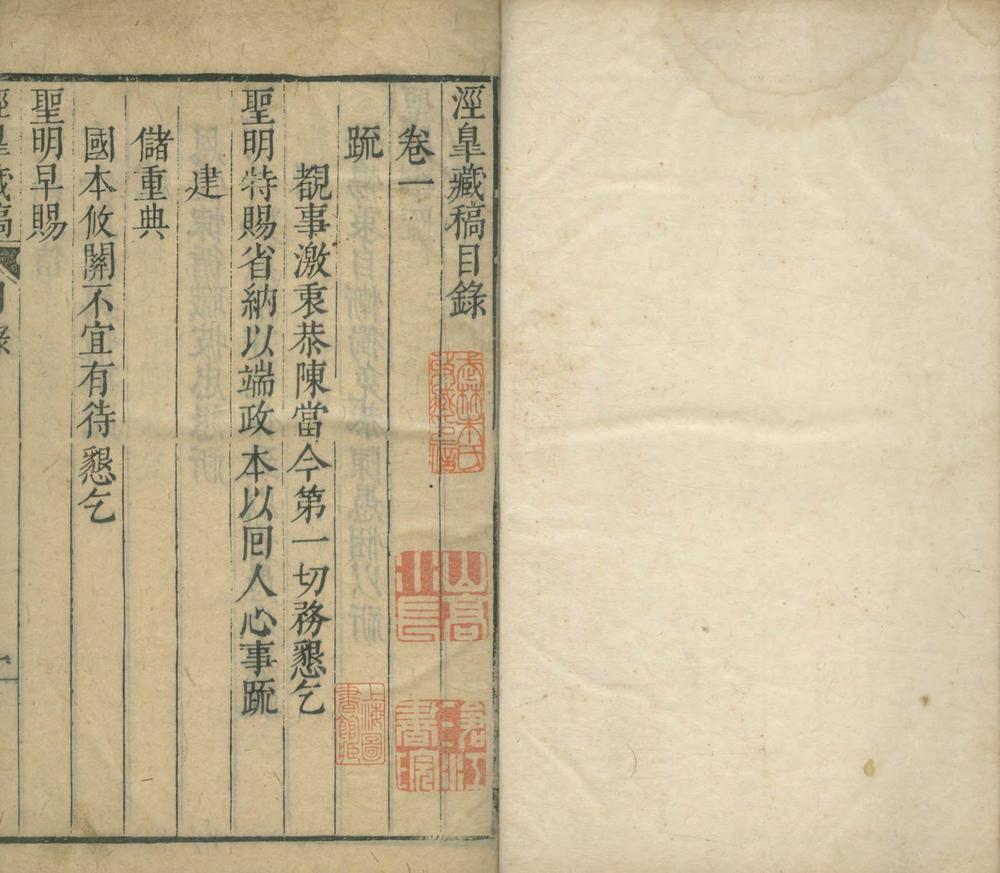 涇臯藏稿目錄
卷一
疏
覩事激衷恭陳當今第一切務懇乞
聖明特賜省納以端政本以囘人心事疏
建
儲重典
國本攸關不宜有待懇乞
聖明早賜
上海圖書館
山高